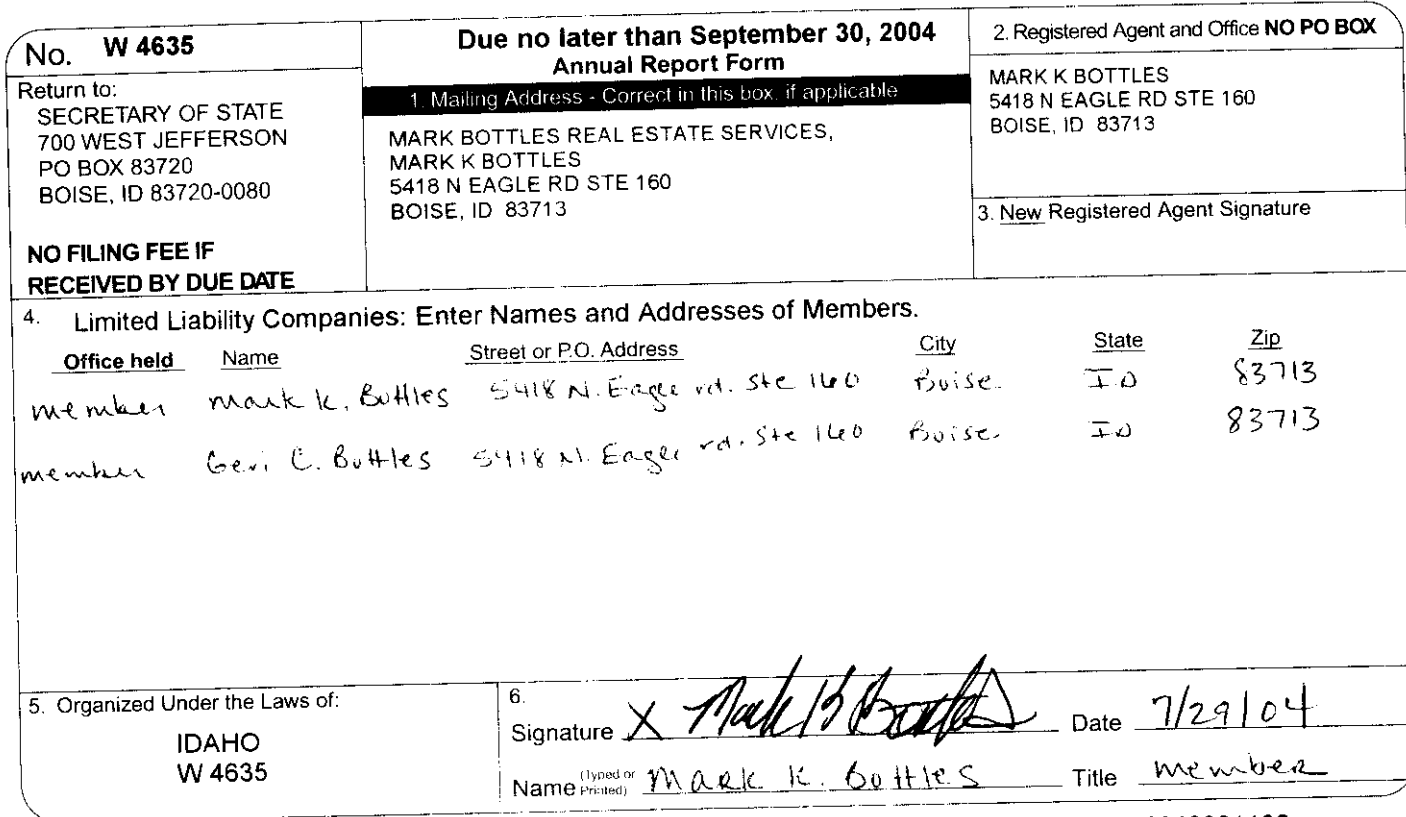 No. W 4635
Return to:
SECRETARY OF STATE
700 WEST JEFFERSON
PO BOX 83720
BOISE, ID 83720-0080
NO FILING FEE IF
RECEIVED BY DUE DATE
Due no later than September 30, 2004
Annual Report Form
1. Mailing Address - Correct in this box, if applicable
MARK BOTTLES REAL ESTATE SERVICES,
MARK K BOTTLES
5418 N EAGLE RD STE 160
BOISE, ID 83713
2. Registered Agent and Office NO PO BOX
MARK K BOTTLES
5418 N EAGLE RD STE 160
BOISE, ID 83713
3. New Registered Agent Signature
4. Limited Liability Companies: Enter Names and Addresses of Members.
Office held Name Street or P.O. Address City State Zip
member Mark K. Bottles 5418 N. Eagle rd. Ste 160 Boise ID 83713
member Geri C. Bottles 5418 N. Eagle rd. Ste 160 Boise ID 83713
5. Organized Under the Laws of:
IDAHO
W 4635
6.
Signature X Mark K Bottles Date 7/29/04
Name (Typed or Printed) Mark K. Bottles Title member